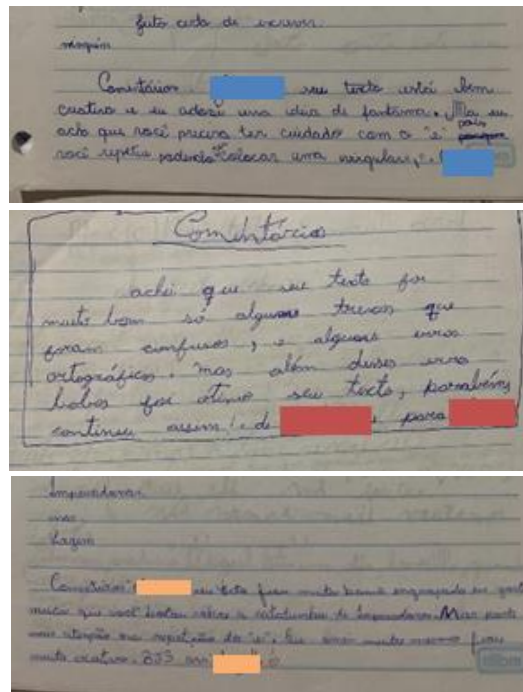 fato certo de escrever.
ninguém
Comentários: seu texto está bem
criativo e eu adorei uma ideia de fantasma. Mas eu
acho que você precisa ter cuidado com o "e" pois
você repetiu podendo colocar uma vírgula
Comentários
achei que seu texto foi
muito bom só alguns trexos que
foram confusos, e alguns erros
ortográficos. mas além desses erros
bobos foi otimo seu texto, parabéns
continue assim! de para
mas
Comentários: seu texto ficou muito bom e engraçado eu gostei
muito que você botou sobre a estatuinha de Mas preste
mais atenção na repetição do "e", ficou
muito criativo. BJS